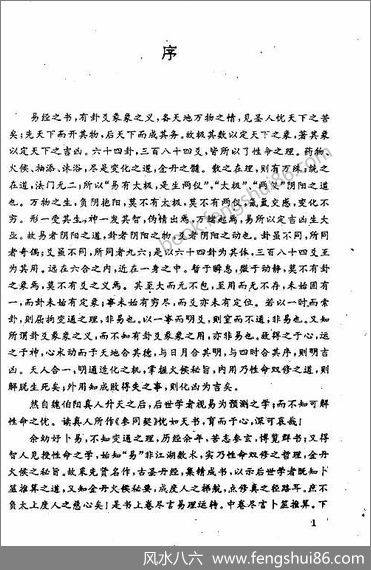 序
易经之书，有卦爻彖象之义，备天地万物之情，见圣人忧天下之苦
矣；先天下而开其物，后天下而成其务。故极其数以定天下之象，著其象
以定天下之吉凶。六十四卦，三百八十四爻，皆所以丁性命之理。药物
火候、抽添、沐浴，尽是变化之道，金丹之髓。散之在理，则有万殊；统之
在道，法门无二；所以“易有太极，是生两仪”，“太极”、“两仪”阴阳之道
也。万物之生，负阴抱阳，莫不有太极，莫不有两仪，氤氲交感，变化不
穷。形一受其生，神一发其智，伪情出焉，万绪起焉，易所以定吉凶生大
业。故易者阴阳之道，卦者阴阳之物，爻者阴阳之动也。卦虽不同，所同
者奇偶；爻虽不同，所同者九六；是以六十四卦为其体，三百八十四爻互
为其用。远在六合之内，近在一身之中。暂于瞬息，微于动静，莫不有卦
之象焉，莫不有爻之义焉。其至大而无不包，至用而无不存，未始团有
一，而卦未始有定象；事未始有穷尽，而爻亦未有定位。若以一时而索
卦，则局拘变通之理，非易也。以一事而明爻，则窒而不通；非易也。又知
所谓卦爻彖象之义，而不知有卦爻彖象之用，亦非易也。故得之于心，运
之于神，心术动而于天地合其德，与日月合其明，与四时合其序，则明吉
凶。天人合一，明通造化之机，掌握火候秘旨，内用乃性命双修之道，则
解脱生死矣；外用知成败得失之事，则化凶为吉矣。
然自魏伯阳真人升天之后，后世学者视易为预测之学；而不知可解
性命之忧。读真人所作《参同契》恍如天书，育而于心，深可哀哉！
余幼好卜易，不知变通之理，历经余年，苦志参玄，博览群书；又得
智人见授性命之学，始知“易”非江湖数术，实乃性命双修之哲理，金丹
火候之秘旨。故采先贤名作，古圣丹经，集精成书，以示后世学者既知卜
筮推算之道，又知金丹火候秘要，成度人之梯航，点修真之径路耳。庶不
负太上度人之慈心矣！是书上卷尽言易理运转。中卷尽言卜筮推算。下
1
book.fengshui86.com
风水八六 - www.fengshui86.com